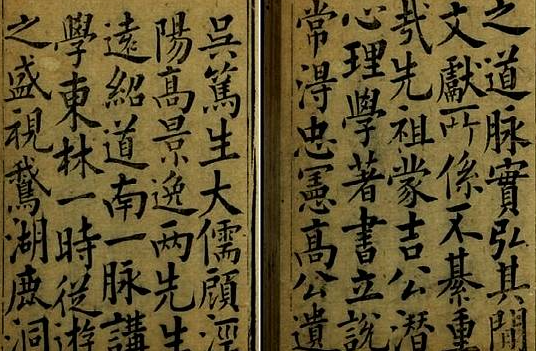 之道脉實弘其間
文獻所係不綦重
哉先祖蒙吉公潛
心理學著書立說
常得忠憲高公遺
吳篤生大儒顧涇
陽高景逸兩先生
遠紹道南一脉講
學東林一時從遊
之盛視鵞湖鹿洞